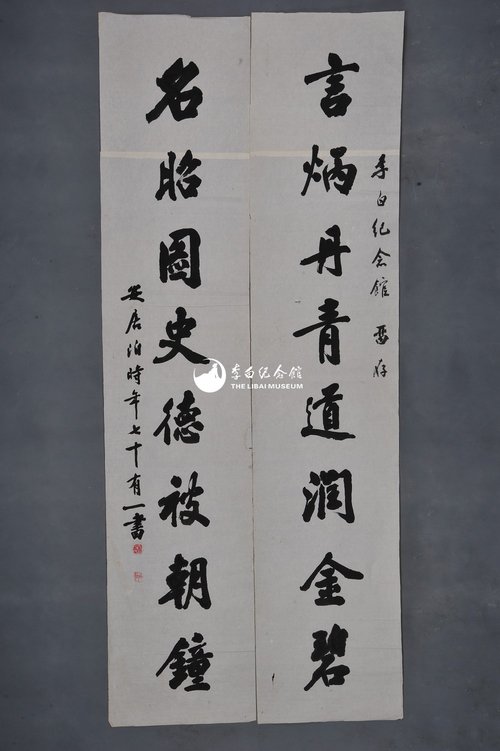 言炳丹青道润金碧
李白纪念馆 留存
名昭圖史德被朝鐘
安居泊時年七十有一書
李白纪念馆
THE LIBAI MUSEUM